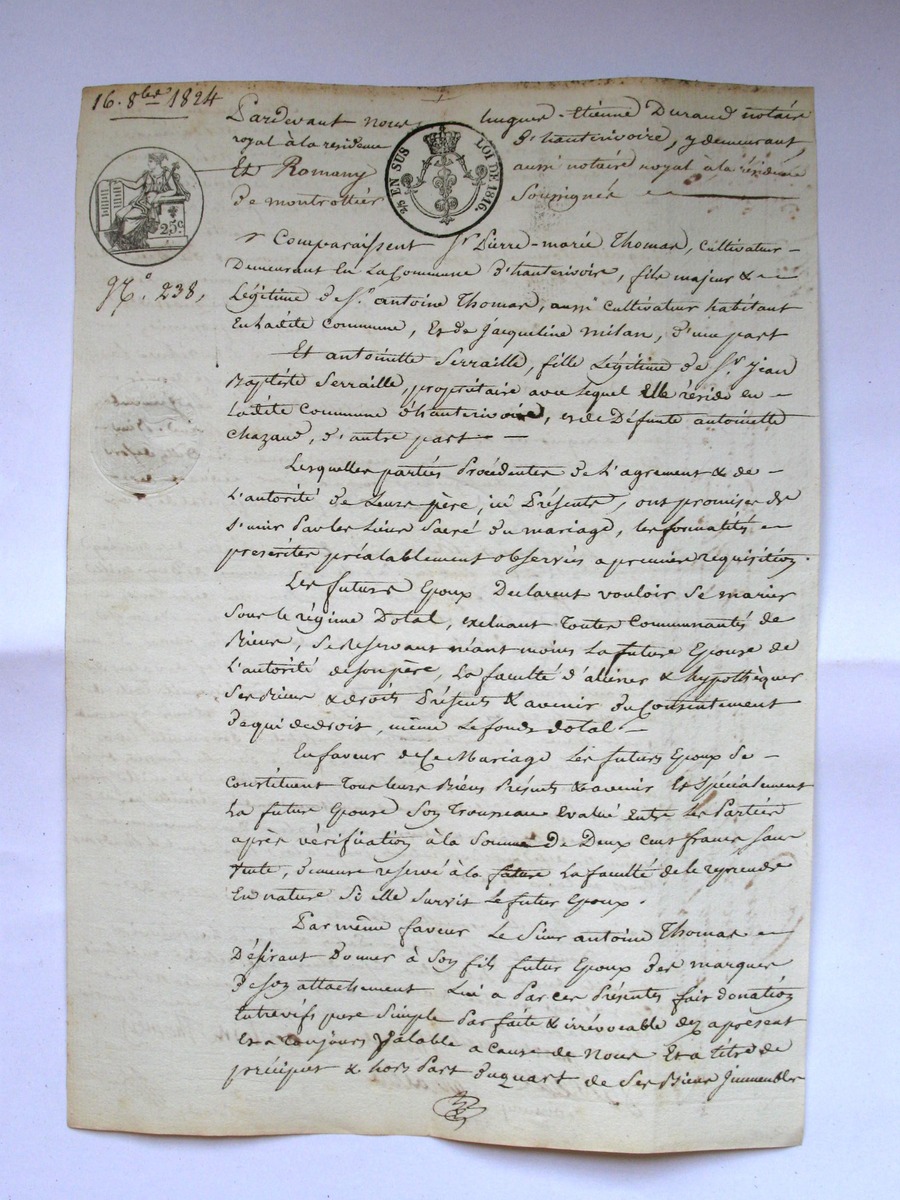 16. 8bre 1824
Pardevant Nous hugues-Etienne Durand notaire
royal à la residence d'hauterivoire, y demeurant,
Et Romany aussi notaire royal à la résidence
de montrottier Soussignés
25 EN SUS LOI DE 1816.
25c
N°. 238,
Comparaissent Sr. Pierre-marie Thomas, cultivateur
Demeurant En La Commune d'hauterivoire, fils majeur &
Légitime de Sr. antoine Thomas, aussi cultivateur habitant
En ladite Commune, Et de jacqueline milan, d'une part
Et antoinette Serraille, fille Légitime de Sr. jean
Baptiste Serraille, propriétaire avec lequel Elle réside en
Ladite Commune d'hauterivoire, et de Défunte antoinette
Chazaud, d'autre part
Lesquelles parties Procédentes de L'agrément & de
L'autorité de Leurs père, ici Présents, ont promises de
s'unir Par les Liens Sacré du mariage, les formalités
prescrites préalablement observées a première requisition.
Les futurs Epoux Déclarent vouloir Se marier
Sous le régime Dotal, excluant Toutes Communautés de
Biens, Se Reservant néant moins La future Epouse de
L'autorité de son père, La faculté d'aliéner & hypothèquer
Ses Biens & droits Présents & avenir du Consentement
De qui de droit, même Le fonds dotal.
En faveur de Ce Mariage Les futurs Epoux Se
Constituent Tous leurs Biens Présents & avenir Et Spécialement
La future Epouse Son Trousseau Evalué Entre Les Parties
après vérification à la Somme de Deux cents francs Sans
vente, demeure reservé à la future La faculté de le reprendre
En nature Si elle Survit Le futur Epoux.
Par même faveur Le Sieur antoine Thomas
Désirant donner à Son fils futur Epoux des marques
De son attachement Lui a Par ces Présentes fait donation
Entrevifs pure Simple Parfaite & irrévocable dez apresent
Et a Toujours Valable a cause de Nous Et a titre de
préciput & hors Part du quart de Ses Biens Immeubles